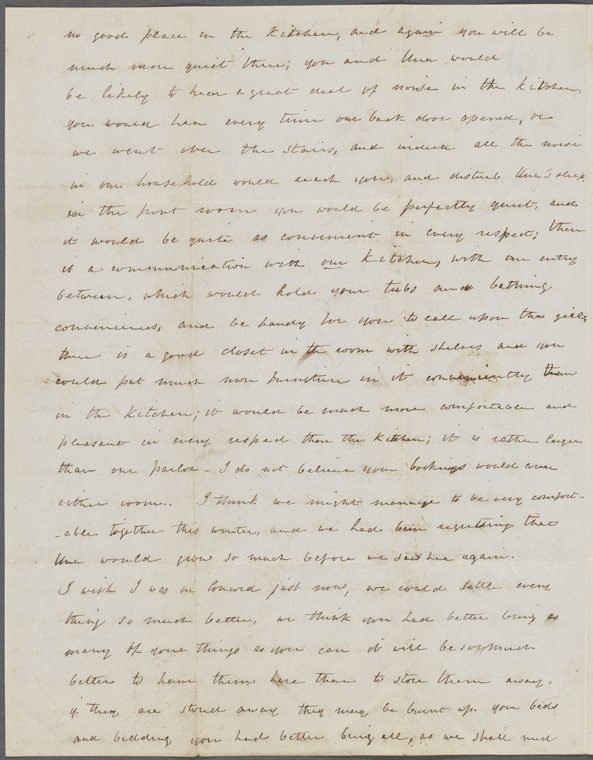 no good place in the kitchen, and again you will be
much more quiet there; you and Una would
be likely to hear a great deal of noise in the kitchen,
you would hear every time our back door opened, or
we went over the stairs, and indeed all the noise
in our household would reach you, and disturb Una's sleep.
in the front room you would be perfectly quiet, and
it would be quite as convenient in every respect; there
is a communication with our kitchen, with an entry
between, which would hold your tubs and bathing
conveniences, and be handy for you to call upon the girls
there is a good closet in the room with shelves and you
could put much more furniture in it conveniently than
in the kitchen; it would be much more comfortable and
pleasant in every respect than the kitchen; it is rather larger
than our parlor - I do not believe your bockings would cover
either room.. I think we might manage to be very comfort-
-able together this winter, and we had been regretting that
Una would grow so much before we saw her again.
I wish I was in Concord just now, we could settle every
thing so much better, we think you had better bring as
many of your things as you can it will be so much
better to have them here than to store them away,
if they are stored away they may be burnt up. your beds
and bedding you had better bring all, as we shall need